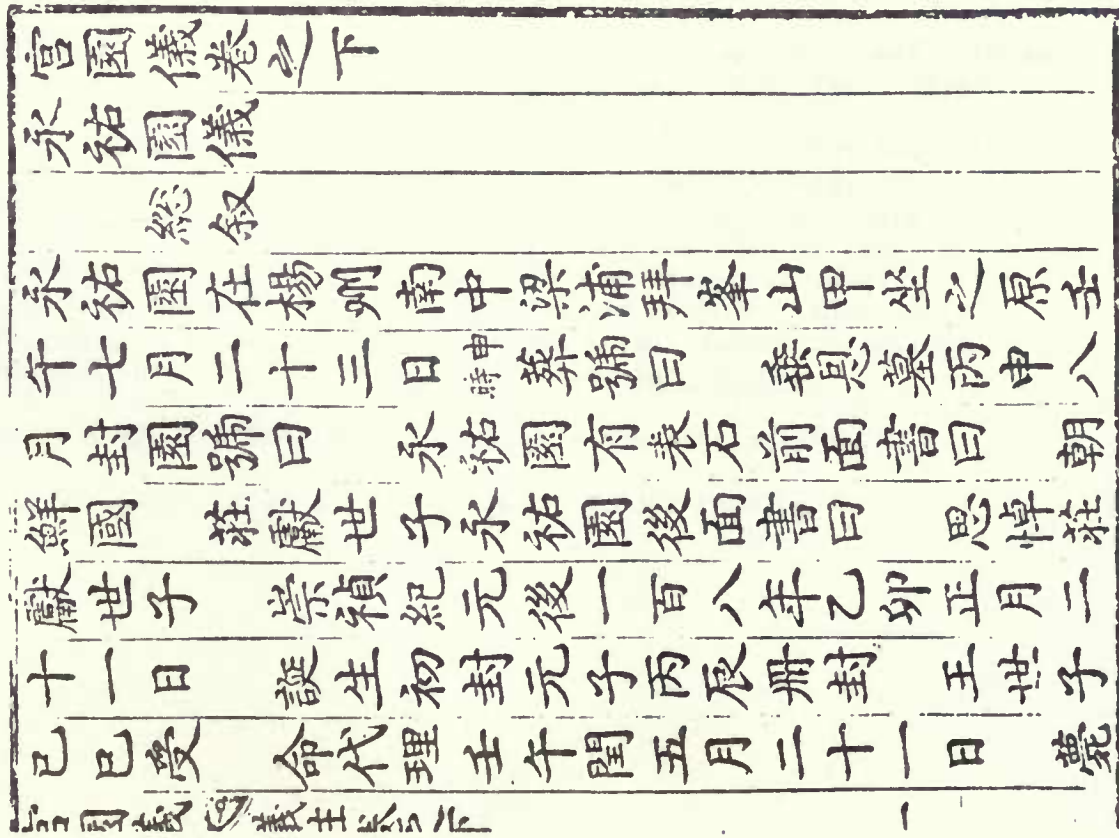 宮園儀卷之下
永祐園儀
總叙
永祐園在楊州南中梁浦拜峯山甲坐之原壬
午七月二十三日申時葬號曰 垂恩墓丙申八
月封園號曰 永祐園有表石前面書曰 朝
鮮國 莊獻世子永祐園後面書曰 思悼莊
獻世子 崇禎紀元後一百八年乙卯正月二
十一日 誕生初封元子丙辰冊封 王世子
己巳受 命代理壬午閏五月二十一日 薨
宮園儀 卷之下 一